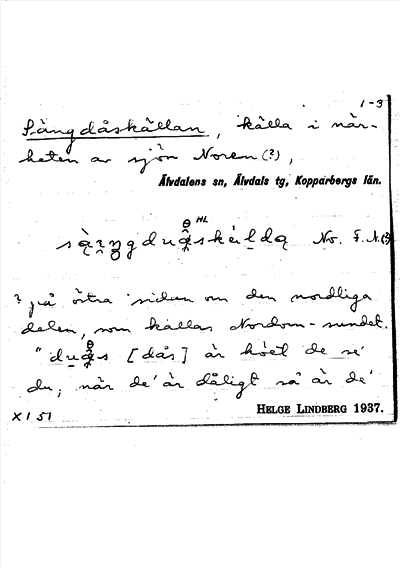 1-3
Sängdåskällan, källa i när-
heten av sjön Noren (?),
Älvdalens sn, Älvdals tg, Kopparbergs län.
No. F. N. (?)
? på östra sidan om den nordliga
delen, som kallas Nordom-sundet.
[dås] är hòet de se'
du, när de' är dåligt så är de'
X I 51
HELGE LINDBERG 1937.